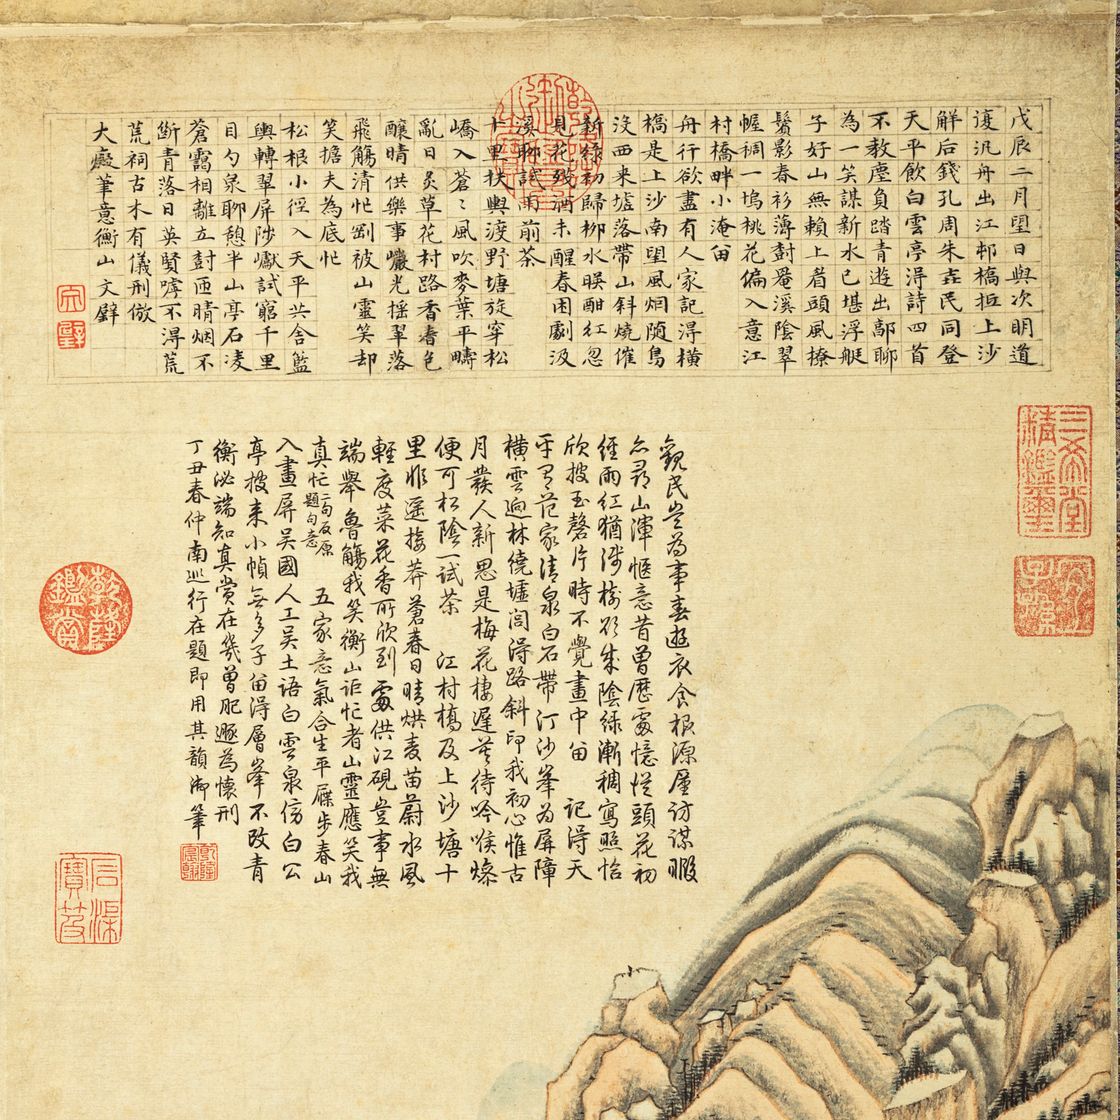 戊辰二月望日與次明道
復汎舟出江邨橋抵上沙
觧后錢孔周朱垚民同登
天平飲白雲亭淂詩四首
不教塵負踏青遊出鄗聊
為一笑謀新水已堪浮艇
子好山無賴上眉頭風撩
鬢影春衫薄罨溪陰翠
幄稠一塢桃花偏入意江
村橋畔小淹畱
舟行欲盡有人家記得橫
橋是上沙南望風烟随鳥
沒西来墟落帶山斜燒催
新綠初歸柳水暎酣紅忽
見花殘酒未醒春困劇汲
溪聊試雨前茶
十里扶輿渡野塘旋穿松
嶠入蒼〻風吹麥葉平疇
亂日炙草花村路香春色
釀晴供樂事巖光摇翠落
飛觴清忙剛被山靈笑却
笑擔夫為底忙
松根小徑入天平共舍籃
輿轉翠屏陟巘試窮千里
目勺泉聊憩半山亭石淩
蒼靄相離立匝晴烟不
断青落日英賢嗟不得荒
荒祠古木有儀刑倣
大癡筆意衡山文璧
文璧
觀民豈為事春遊衣食根源屢訪謀暇
尋山渾愜意昔曾歷處憶從頭花初
經雨紅猶淺樹欲成陰綠漸稠寫照恰
欣披玉磬片時不覺畫中畱 記淂天
平是范家清泉白石帶汀沙峯為屏障
橫雲迥林繞墟閭淂路斜印我初心惟古
月羨人新思是梅花棲遲莫待吟喉燥
便可松陰一試茶 江村橋及上沙塘十
里非遥接莽蒼春日晴烘麦苗蔚水風
輕度菜花香所欣到處供江硯豈事無
端舉魯觴我笑衡山詎忙者山靈應笑我
真忙二句反原題句意 五家意氣合生平屧步春山
入畫屏吳國人工吳土語白雲泉傍白公
亭披來小幀無多子畱淂層峯不改青
衡泌端知真賞在幾曾肥遯為懷刑
丁丑春仲南巡行在題即用其韻御筆
乾隆御覽之寶
三希堂精鑑璽
宜子孫
乾隆鑑賞
石渠寶笈